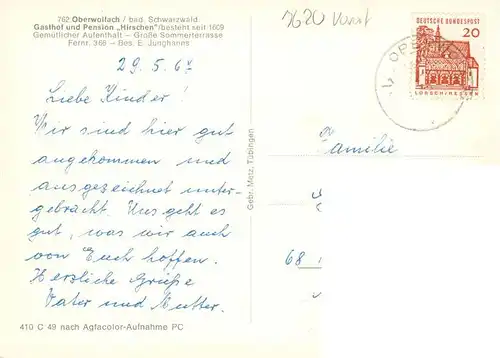 762 Oberwolfach / bad. Schwarzwald
Gasthof und Pension „Hirschen"/besteht seit 1609
Gemütlicher Aufenthalt – Große Sommerterrasse
Fernr. 366 – Bes. E. Junghanns
29.5.67
Liebe Kinder!
Wir sind hier gut
angekommen und
ausgezeichnet unter-
gebracht. Uns geht es
gut, was wir auch
von Euch hoffen.
Herzliche Grüße
Vater und Mutter.
410 C 49 nach Agfacolor-Aufnahme PC
Gebr. Metz, Tübingen
7620
DEUTSCHE BUNDESPOST
20
LORSCH/HESSEN
Familie
68